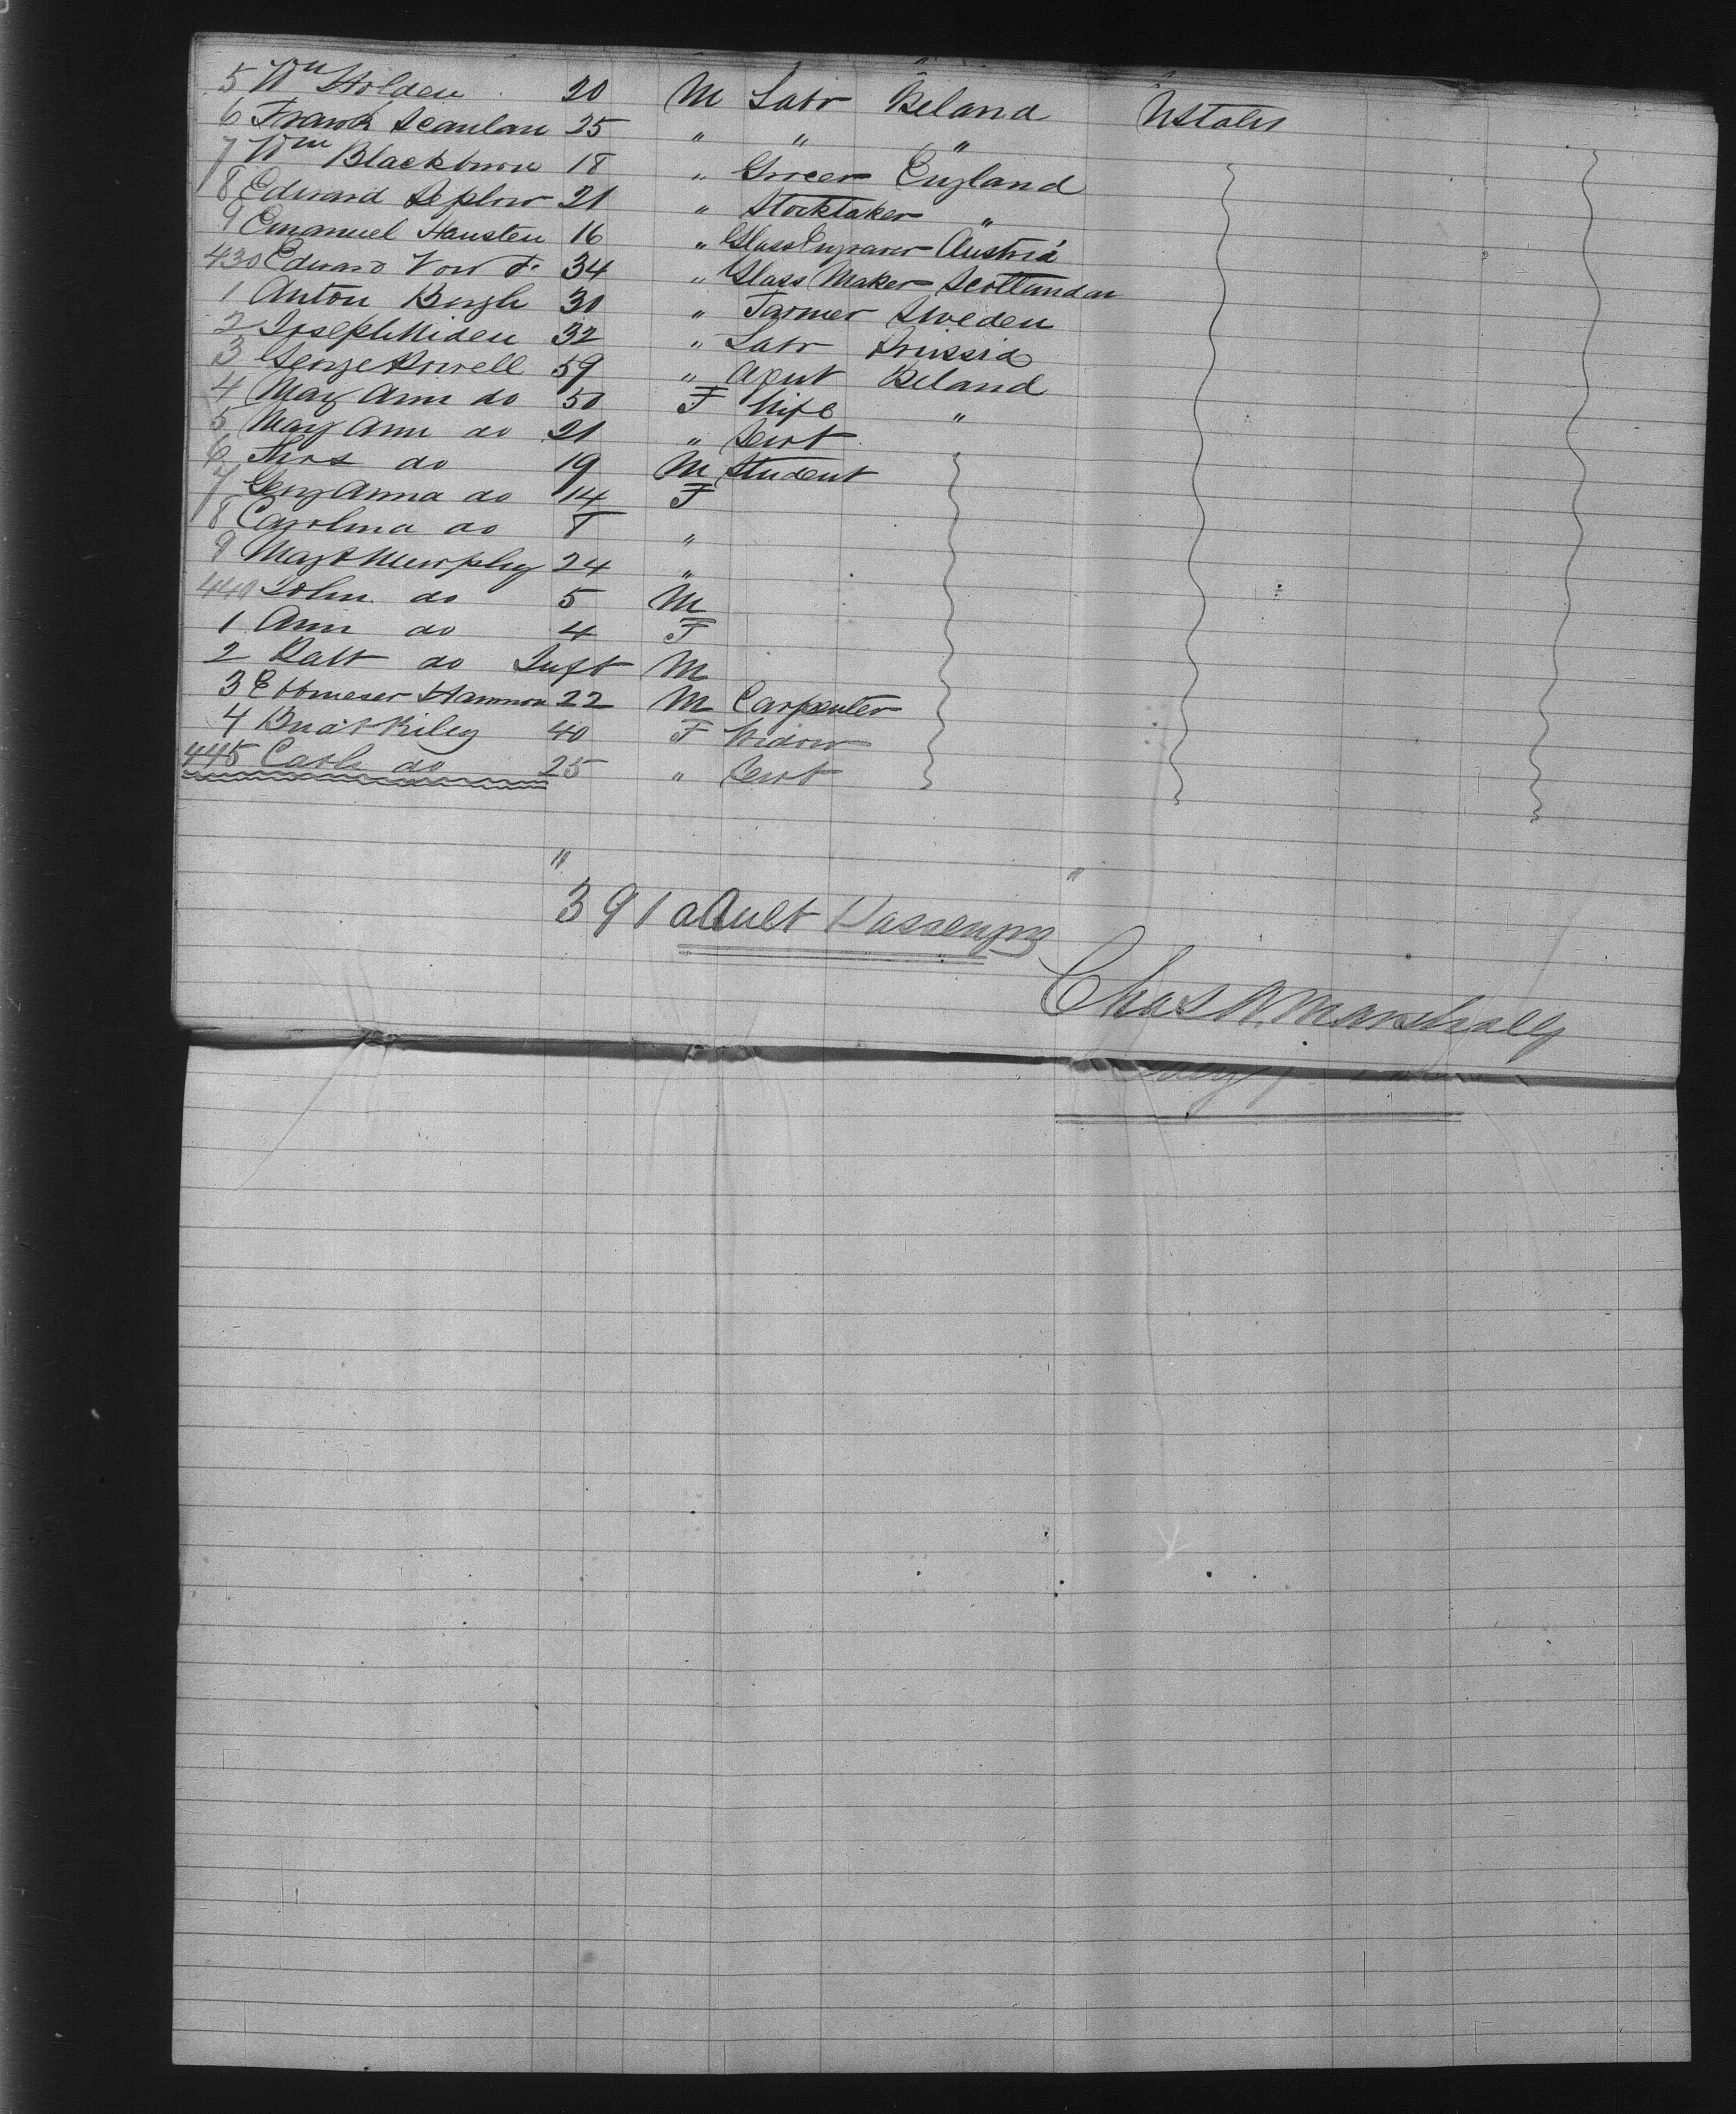 5 Wm Holden 20 M Labr Ireland UStates
6 Frank Scanlan 25 " " "
7 Wm Blackburn 18 " Grocer England
8 Edward 21 " Stocktaker "
9 Emanuel Hausten 16 " Glass Engraver Austria
430 Edward 34 " Glass Maker
1 Anton Bergh 30 " Farmer Sweden
2 Joseph Miden 32 " Labr Prussia
3 George Powell 59 " Agent Ireland
4 Mary Ann do 50 F Wife "
5 Mary Ann do 21 " Servt
6 Thos do 19 M Student
7 Georganna do 14 F
8 Carolina do 8 "
9 Margt Murphy 24 "
440 John do 5 M
1 Ann do 4 F
2 Patt do Inft M
3 22 M Carpenter
4 Riley 40 F Widow
445 Cath do 25 " Servt
" "
391 adult Passengers
Chas W. Marshall